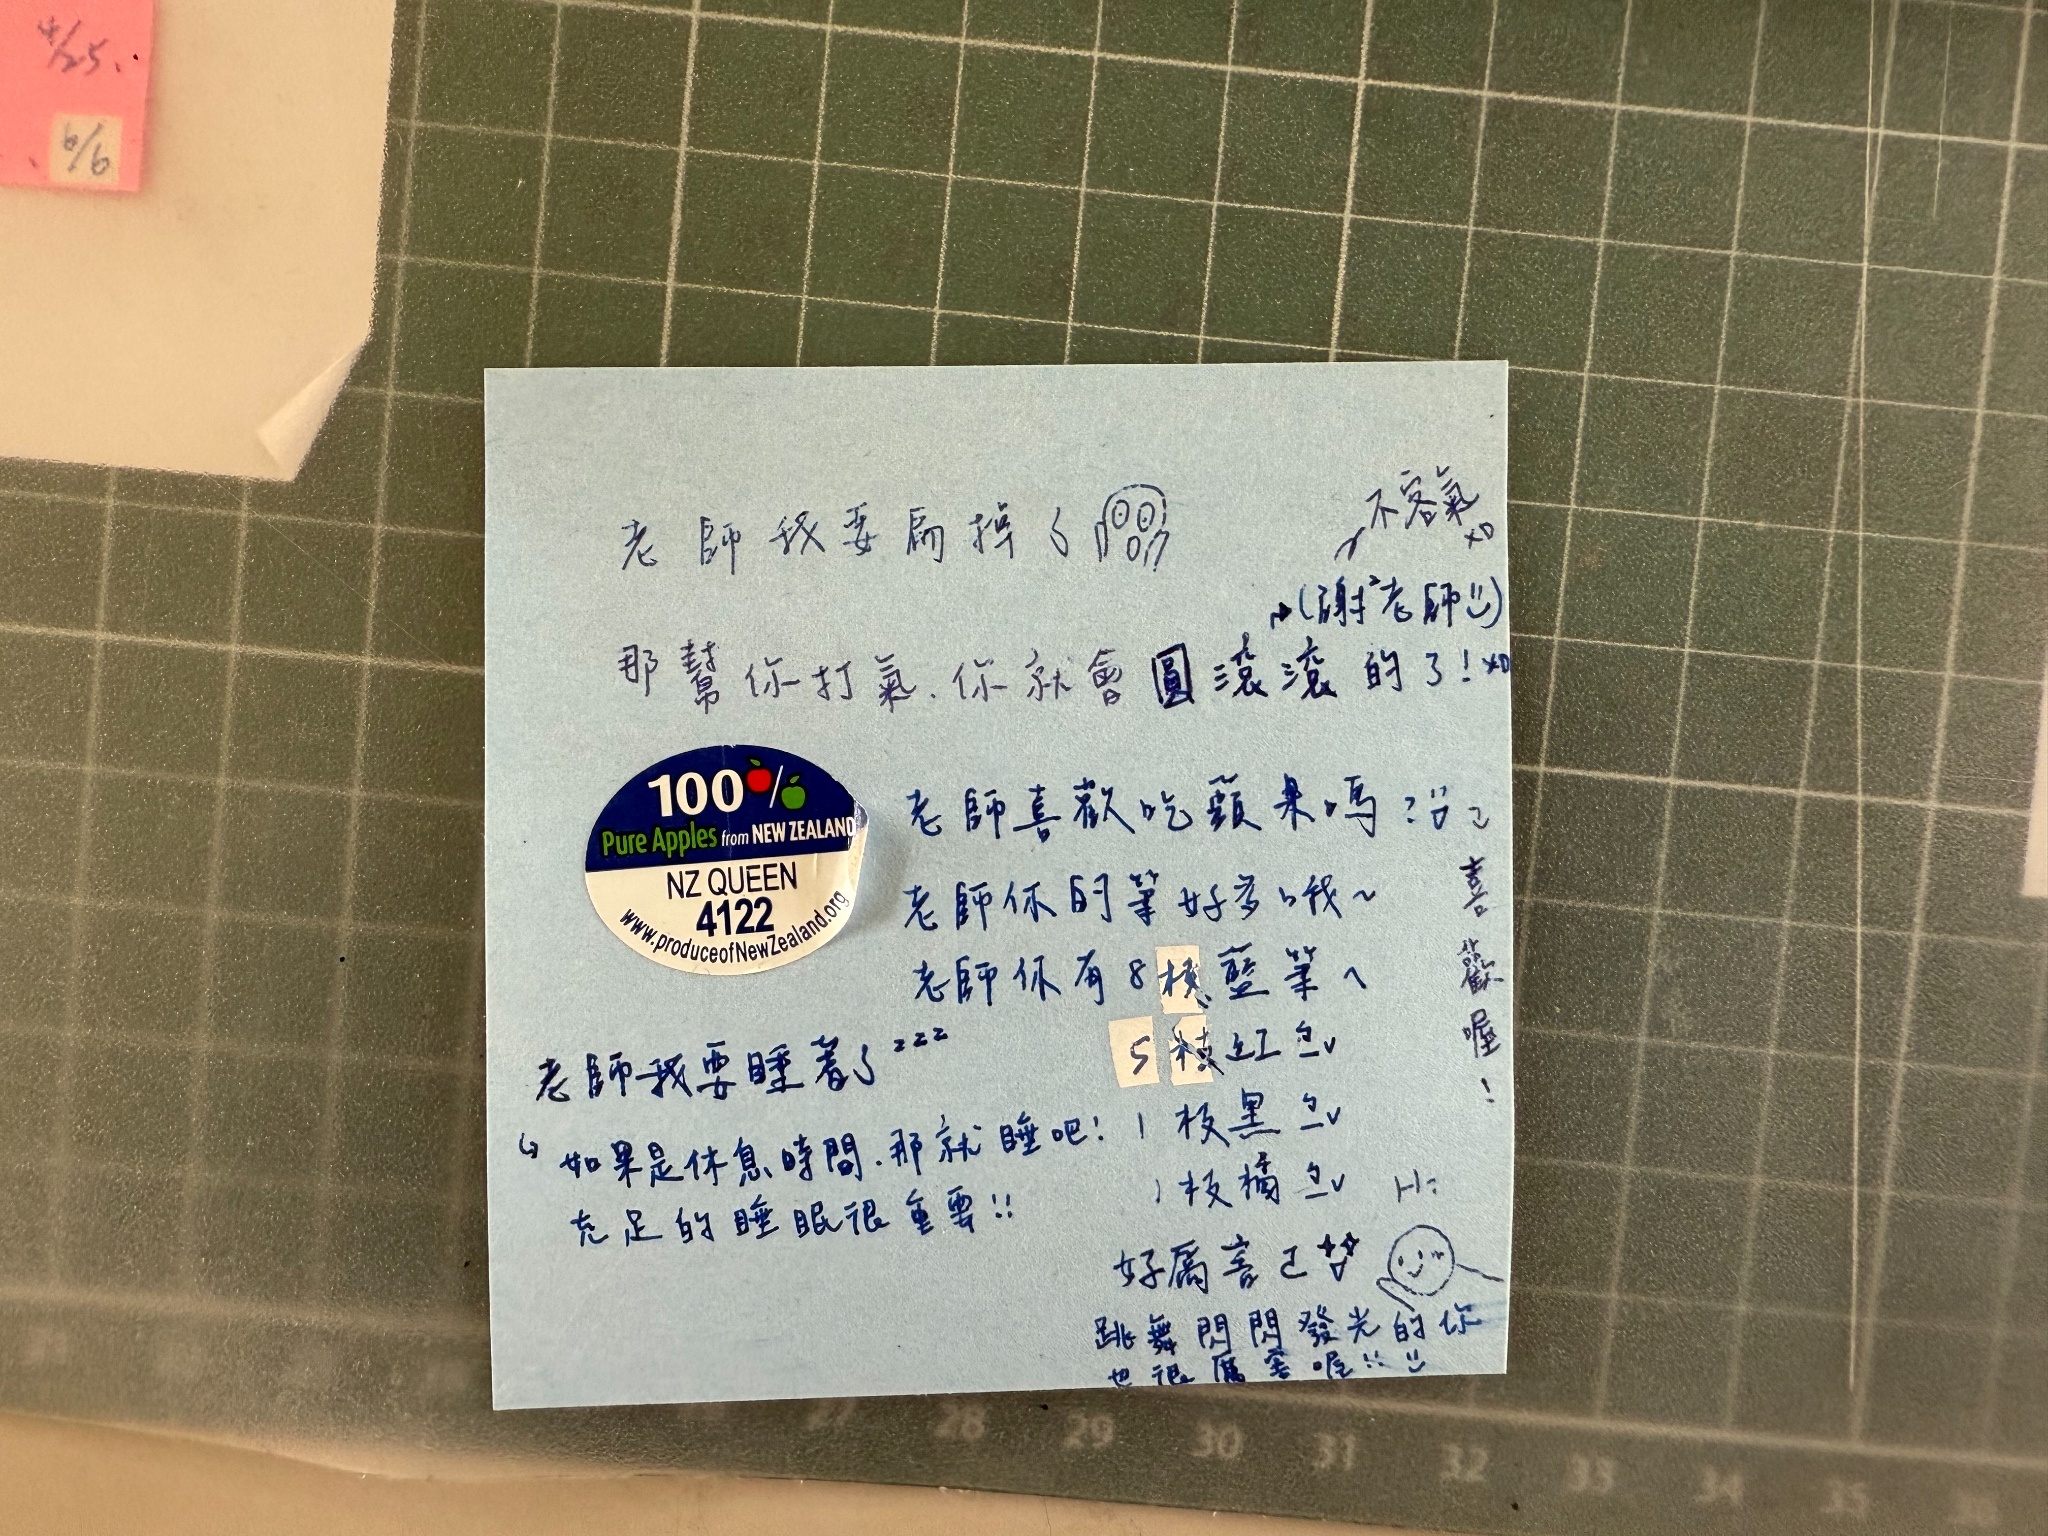 4/25.
6/6
老師我要扁掉了
不客氣
XD
(謝²老師 )
那幫你打氣.你就會圓滾滾的了! XD
100%
Pure Apples from NEW ZEALAND
NZ QUEEN
4122
www.produceofNewZealand.org
老師喜歡吃蘋果嗎?
喜歡喔!
老師你的筆好多哦~
老師你有8枝藍筆、
5枝紅色、
1枝黑色、
1枝橘色、
老師我要睡着了zzz
如果是休息時間.那就睡吧!
充足的睡眠很重要!!
好厲害
Hi
跳舞閃閃發光的你
也很厲害喔!!
27 28 29 30 31 32 33 34 35 36